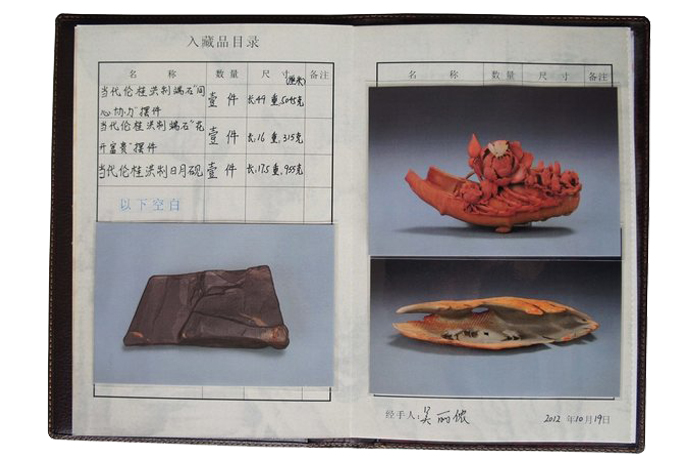 入藏品目录
名 称 数量 尺 寸 (厘米) 备注
当代伦桂洪制端石"同心协力"摆件 壹 件 长:49 重:5045克
当代伦桂洪制端石"花开富贵"摆件 壹 件 长:16 重:315克
当代伦桂洪制日月砚 壹 件 长:17.5 重:955克
以下空白
名 称 数量 尺 寸 备注
经手人:吴丽侬 2012 年10月19日